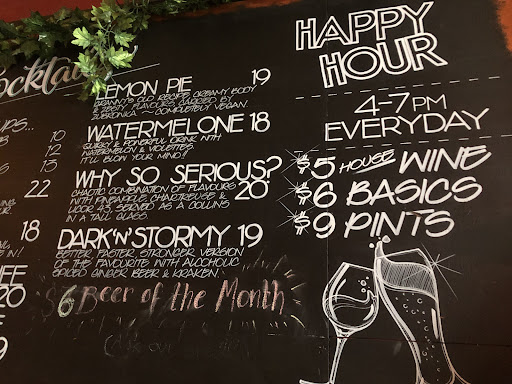 HAPPY
HOUR
4-7PM
EVERYDAY
$5 HOUSE WINE
$6 BASICS
$9 PINTS
LEMON PIE 19
GRANNY'S OLD RECIPE CREAMY BODY
& ZESTY FLAVOURS, CARRIED BY
ZUBROWKA ~ COMPLETELY VEGAN.
WATERMELONE 18
QUIRKY & POWERFUL DRINK WITH
WATERMELON & VIOLETTES.
IT'LL BLOW YOUR MIND!!
WHY SO SERIOUS? 20
CHAOTIC COMBINATION OF FLAVOURS
WITH PINEAPPLE, CHARTREUSE &
LICOR 43, SERVED AS A COLLINS
IN A TALL GLASS.
DARK'N'STORMY 19
BETTER, FASTER, STRONGER VERSION
OF THE FAVOURITE WITH ALCOHOLIC
SPICED GINGER BEER & KRAKEN.
$6 Beer of the Month
10
12
13
22
18
20
9